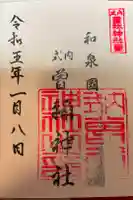 和泉國
式内
曽祢神社
令和五年一月八日